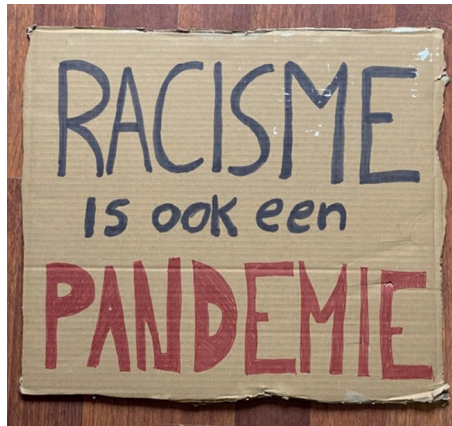 RACISME
is ook een
PANDEMIE